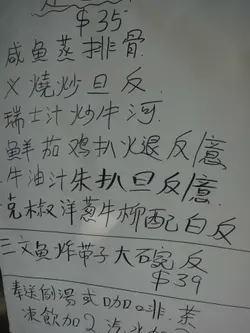 $35
咸鱼蒸排骨
义燒炒旦反
瑞士汁炒牛河
鮮茄鸡扒火退反意
牛油汁朱扒旦反意
克椒洋葱牛柳配白反
三文鱼炸带子大石宛反
$39
奉送例湯或咖啡.茶
凍飲加2 汽水